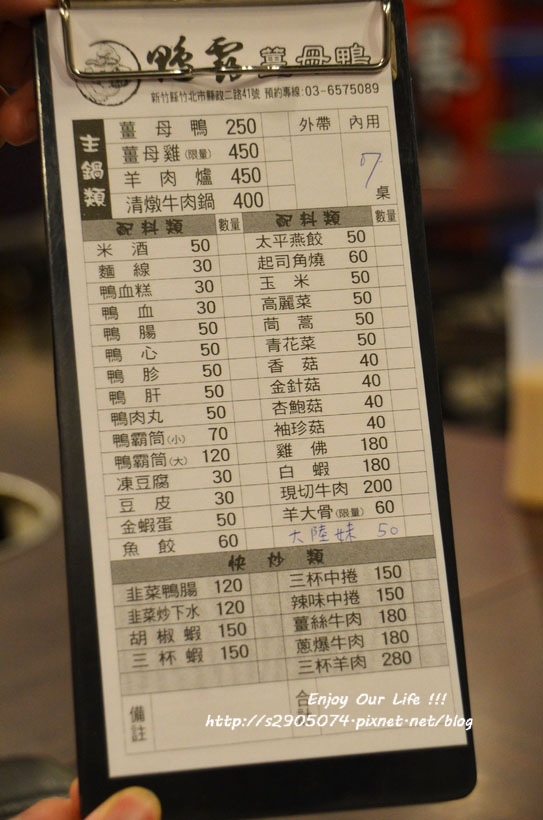 鴨霸 薑母鴨
新竹縣竹北市縣政二路41號 預約專線:03-6575089
主鍋類
外帶 內用
7 桌
薑母鴨 250
薑母雞(限量) 450
羊肉爐 450
清燉牛肉鍋 400
配料類 數量
米酒 50
麵線 30
鴨血糕 30
鴨血 30
鴨腸 50
鴨心 50
鴨胗 50
鴨肝 50
鴨肉丸 50
鴨霸筒(小) 70
鴨霸筒(大) 120
凍豆腐 30
豆皮 30
金蝦蛋 50
魚餃 60
配料類 數量
太平燕餃 50
起司角燒 60
玉米 50
高麗菜 50
茼蒿 50
青花菜 50
香菇 40
金針菇 40
杏鮑菇 40
袖珍菇 40
雞佛 180
白蝦 180
現切牛肉 200
羊大骨(限量) 60
大陸妹 50
快炒類
韭菜鴨腸 120
韭菜炒下水 120
胡椒蝦 150
三杯蝦 150
三杯中捲 150
辣味中捲 150
薑絲牛肉 180
蔥爆牛肉 180
三杯羊肉 280
備註
合計
Enjoy Our Life !!!
http://s2905074.pixnet.net/blog